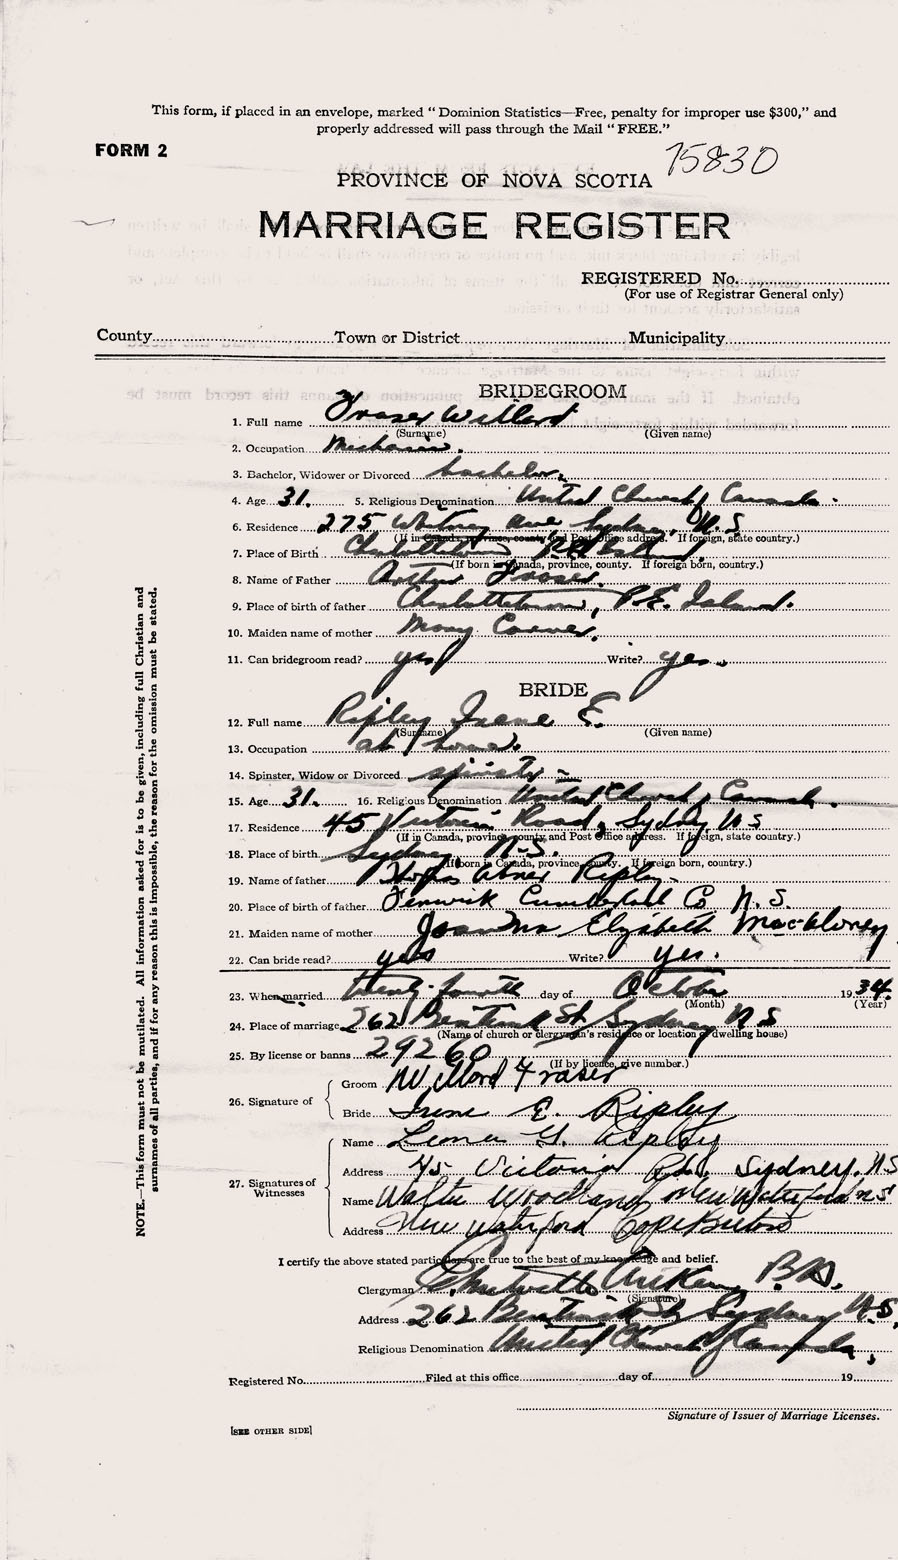 This form, if placed in an envelope, marked "Dominion Statistics—Free, penalty for improper use $300," and
properly addressed will pass through the Mail "FREE."
FORM 2
15830
PROVINCE OF NOVA SCOTIA
MARRIAGE REGISTER
REGISTERED No.
(For use of Registrar General only)
County Town or District Municipality
BRIDEGROOM
1. Full name Fraser Willard
(Surname) (Given name)
2. Occupation Mechanic.
3. Bachelor, Widower or Divorced bachelor.
4. Age 31. 5. Religious Denomination United Church of Canada.
6. Residence 275 Whitney ave Sydney, N.S.
(If in Canada, province, county and Post Office address. If foreign, state country.)
7. Place of Birth Charlottetown P.E. Island.
(If born in Canada, province, county. If foreign born, country.)
8. Name of Father Arthur Fraser.
9. Place of birth of father Charlottetown, P.E. Island.
10. Maiden name of mother Mary
11. Can bridegroom read? yes Write? yes.
BRIDE
12. Full name Ripley Irene E.
(Surname) (Given name)
13. Occupation at home.
14. Spinster, Widow or Divorced spinster
15. Age 31. 16. Religious Denomination United Church of Canada.
17. Residence 45 Victoria Road, Sydney N S
(If in Canada, province, county and Post Office address. If foreign, state country.)
18. Place of birth Sydney N.S.
(If born in Canada, province, county. If foreign born, country.)
19. Name of father Abner Ripley.
20. Place of birth of father Fenwick Cumberland Co N.S.
21. Maiden name of mother Elizabeth
22. Can bride read? yes Write? yes.
23. When married twenty-fourth day of October 1934.
(Month) (Year)
24. Place of marriage 262 Bentinck St Sydney N S
(Name of church or clergyman's residence or location of dwelling house)
25. By license or banns 29260
(If by license, give number.)
26. Signature of
Groom Willard Fraser
Bride Irene E. Ripley
27. Signatures of Witnesses
Name Leona G. Ripley
Address 45 Victoria Rd. Sydney. N S
Name Walter Woodland New Waterford NS
Address New Waterford Cape Breton
I certify the above stated particulars are true to the best of my knowledge and belief.
Clergyman Aitken B.D.
(Signature)
Address 262 Bentinck St Sydney N.S.
Religious Denomination United Church of Canada.
Registered No. Filed at this office day of 19
Signature of Issuer of Marriage Licenses.
[SEE OTHER SIDE]
NOTE.—This form must not be mutilated. All information asked for is to be given, including full Christian and
surnames of all parties, and if for any reason this is impossible, the reason for the omission must be stated.